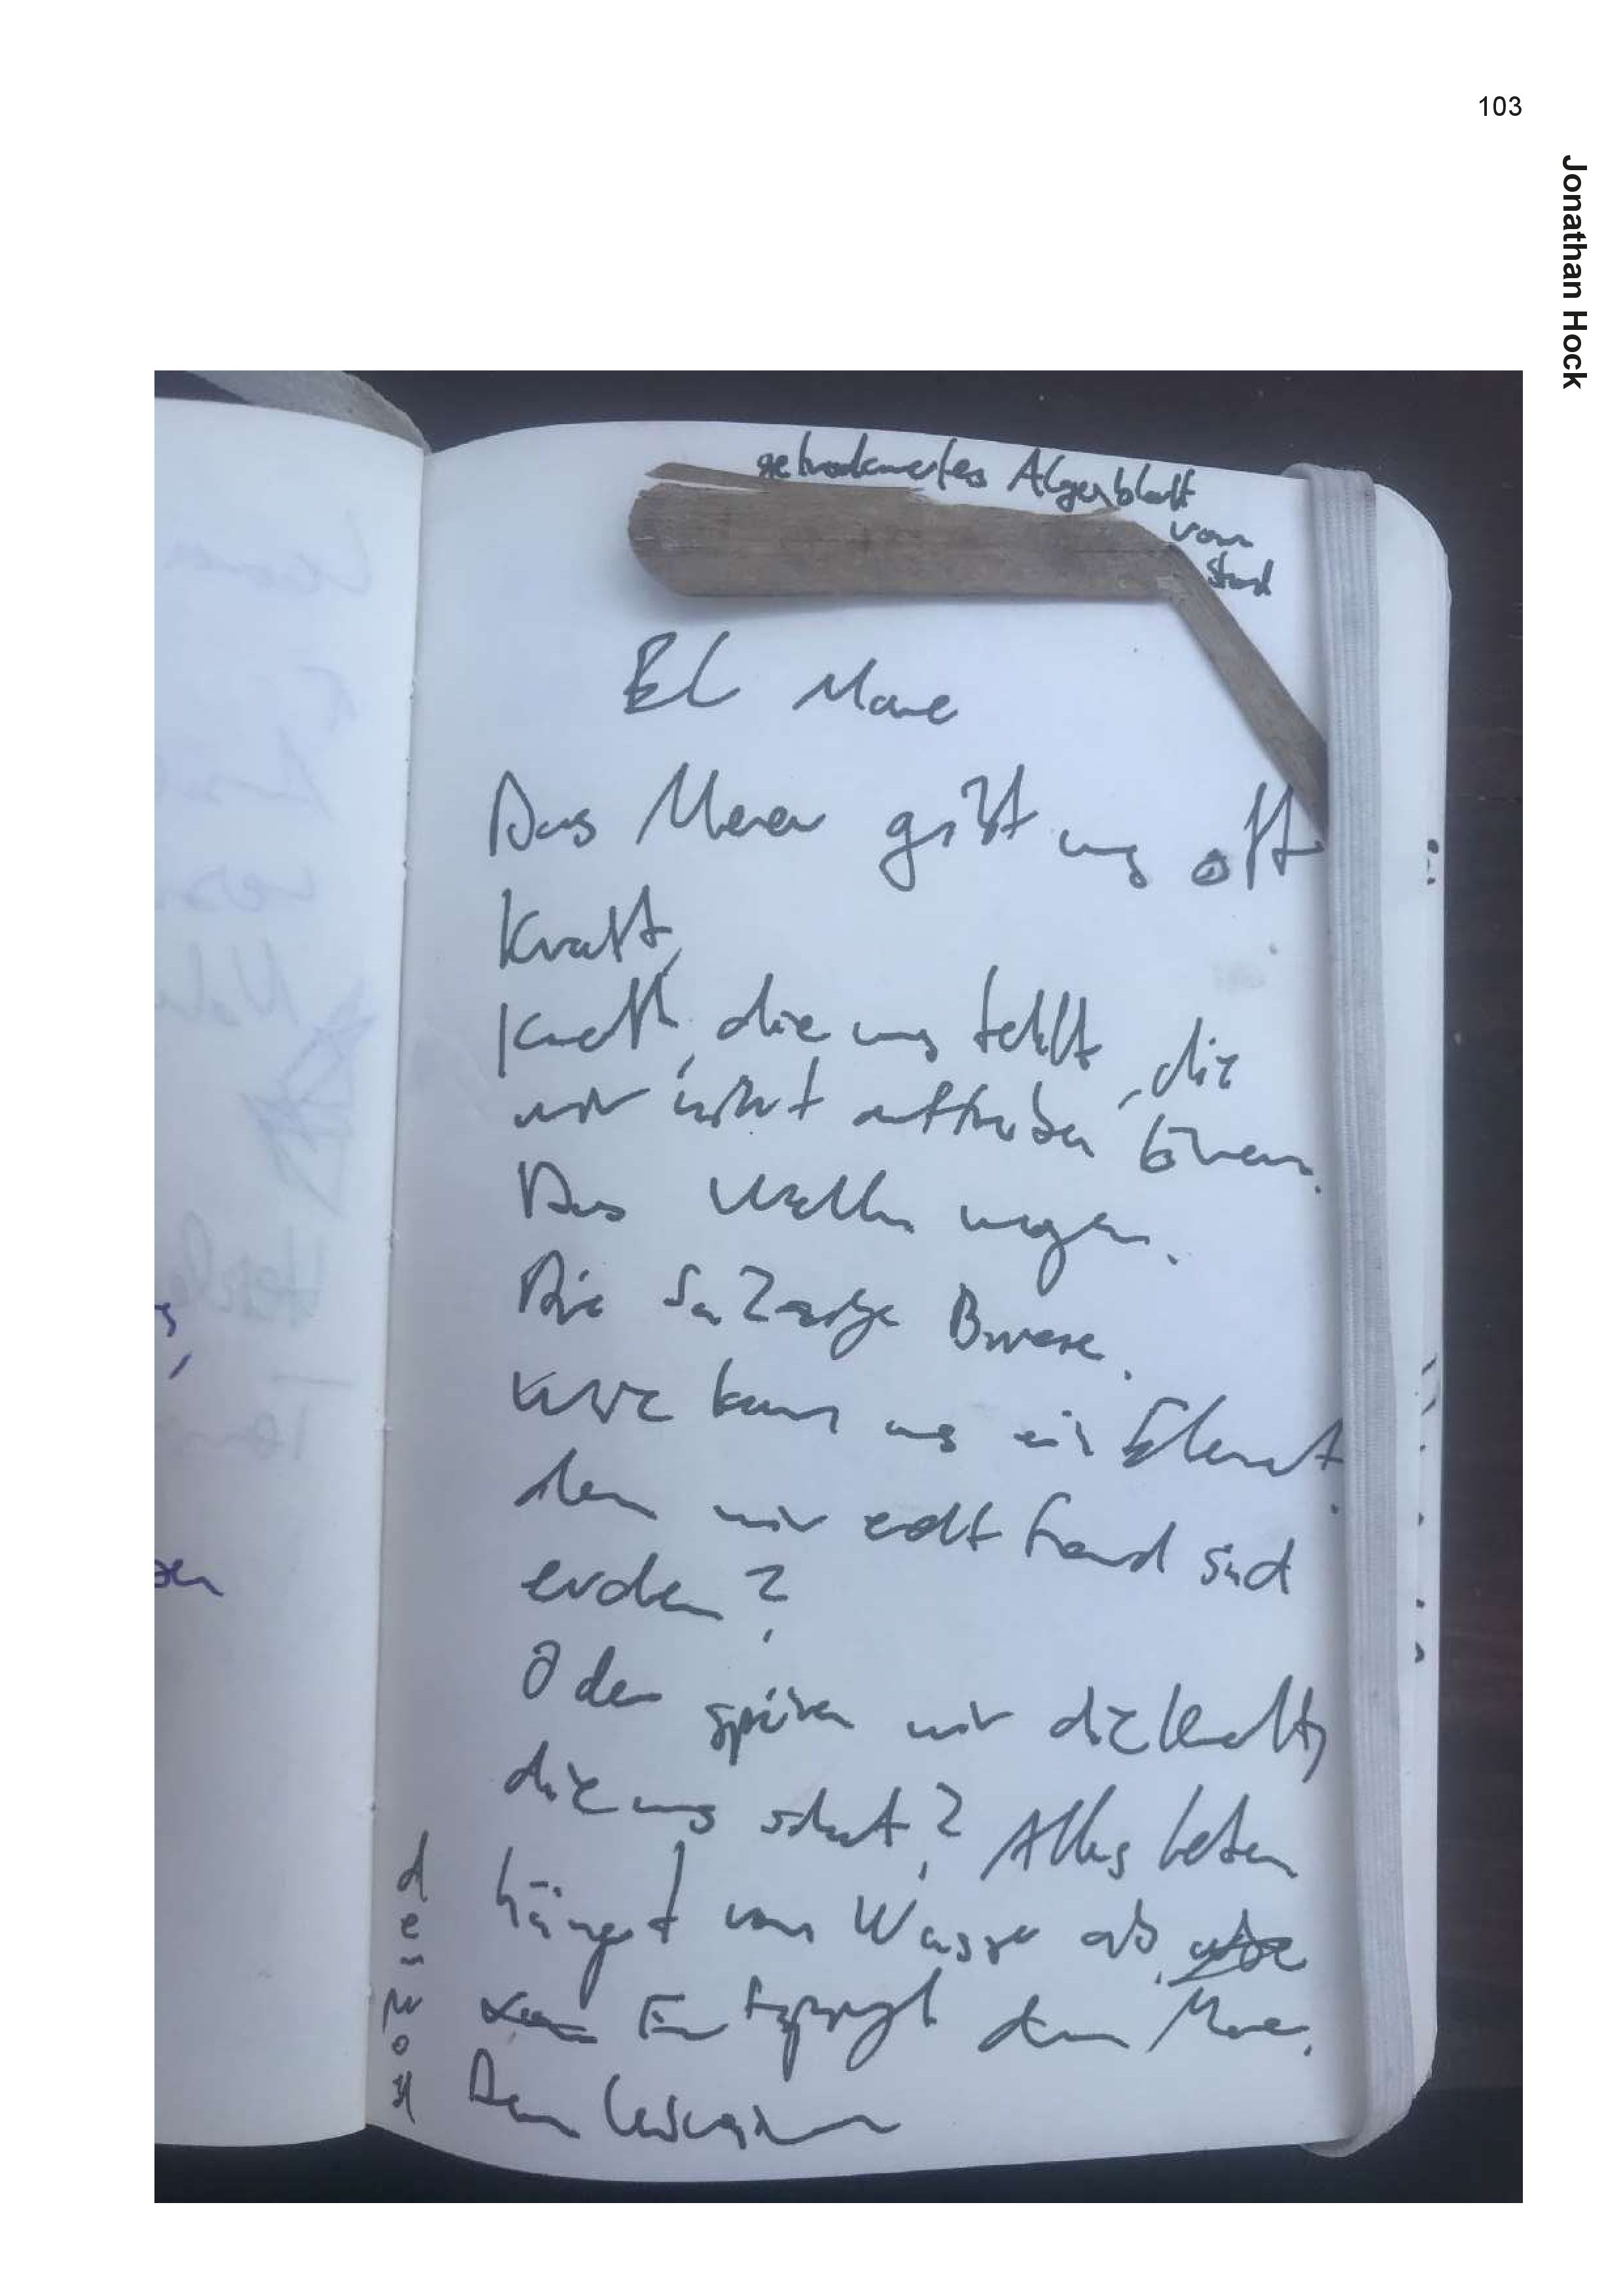 103
Jonathan Hock
getrocknetes Algenblatt
vom
Strand
El Mare
Das Meer gibt uns oft
Kraft,
Kraft, die uns fehlt, die
wir nicht auftreiben können.
Das Wellen wogen.
Die Salzige Brise.
Wie kann uns ein Element
dem wir echt fremd sind
erden?
Oder spüren wir die Kraft,
die uns schuf? Alles Leben
hängt vom Wasser ab,
Entspringt dem Mare.
Dem